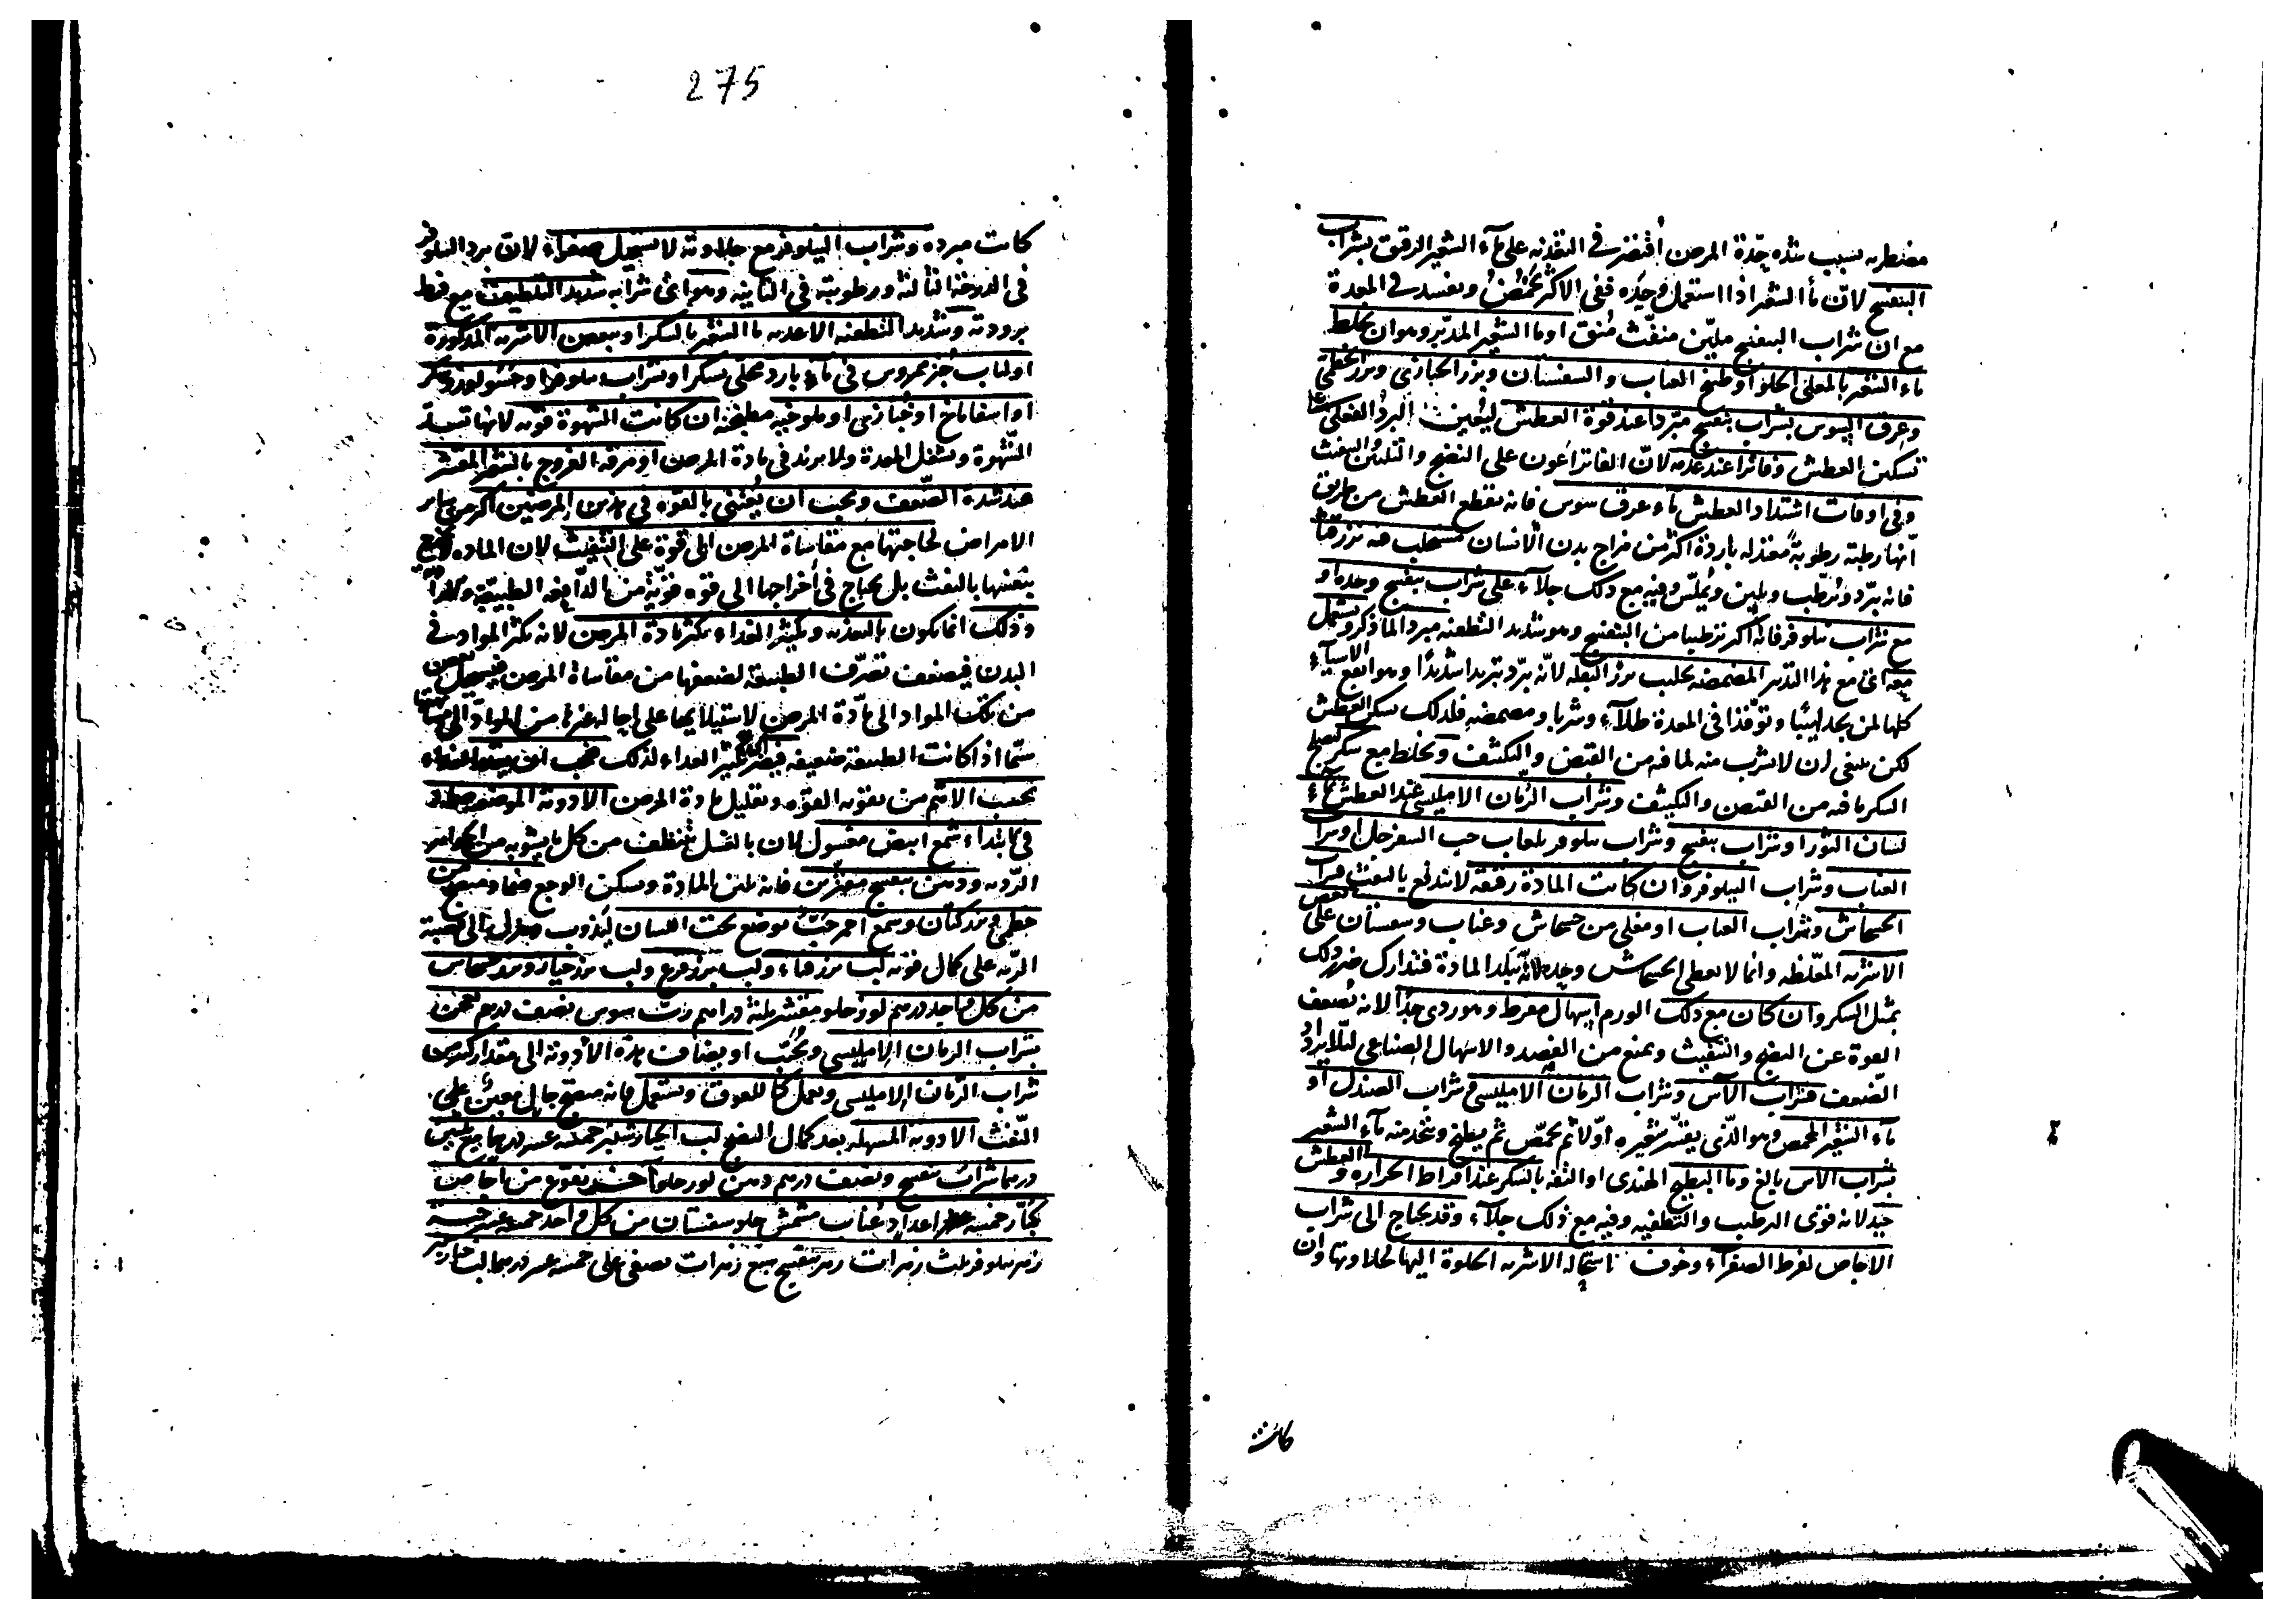 مضطربه بسبب شده حدّة المرض اُقتصر فى التغذيه على مآء الشعير الرقيق بشراب
البنفسج لانّ مأ الشعير اذا استعمل وحده ففى الاكثر يحمض ويفسد فى المعدة
مع ان شراب البنفسج مليّن منفّث مُنق او ما الشعير المدبّر وهو ان يخلط
ماء الشعير بالمغلى الحلو او طبخ العناب والسفستان وبزر الخبازى وبزر الخطمى
وعرق السوس بشراب بنفسج مبرّدا عند قوة العطش ليُعين البردُ الفعلى على
تسكين العطش وفاترا عند عدمه لانّ الفاتر اَعون على النضج والتليين والنفث
وفى اوقات اشتداد العطش ماء عرق سوس فانه يقطع العطش من طريق
انّها رطبة رطوبةً معتدله باردة اكثر من مزاج بدن الانسان
فانه يبرّد ويُرطّب ويلين ويُملّس وفيه مع ذلك جلآء على شراب بنفسج وحده او
مع شراب نيلوفر فانه اكثر ترطيبا من البنفسج وهو شديد التطفئه مبرد لما ذكر ويستعمل
معه اى مع هذا التدبير المضمضه بحليب بزر البقله لانّه يبرّد تبريدا شديدًا وهو انفع الاشياء
كلها لمن يجد لهيبًا وتوقّدا فى المعدة طلآءً وشربا ومضمضه فلذلك يسكن العطش
لكن ينبغى ان لا يشرب منه لما فيه من القبض والتكثيف ويخلط مع سكر ليصلح
السكر ما فيه من القبض والتكثيف وشراب الرُمان الامليسى عند العطش بماء
لسان الثور او شراب بنفسج وشراب نيلوفر بلعاب حب السفرجل او شراب
العناب وشراب النيلوفر وان كانت المادة رقيقه لا تندفع بالنفث فشراب
الخشخاش وشراب العناب او مغلى من خشخاش وعناب وسفستان على بعض
الاشربه المغلظه وانما لا يعطى الخشخاش وحده لانّه يبلّد المادة فتدارك ضرر ذلك
بمثل السكر وان كان مع ذلك الورم اسهال مفرط وهو ردى جدًا لانه يُضعف
القوة عن النضج والتنفيث ويمنع من الفصد والاسهال الصناعى لئلا يزداد
الضعف فشراب الآس وشراب الرمان الامليسى وشراب الصندل او
مآء الشعير المحمص وهو الذى يقشّر شعيره اوّلا ثم يحمّص ثم يطبخ ويتخذ منه مآء الشعير
بشراب الاس بالغ وما البطيخ الهندى او التفه بالسكر عند افراط الحراره والعطش
جيد لانه قوى الترطيب والتطفيه وفيه مع ذلك جلآء وقد يحتاج الى شراب
الاجاص لفرط الصفرآء وخوف استحاله الاشربه الحلوة اليها لحلاوتها وان
كانت
275
كانت مبرده وشراب النيلوفر مع حلاوته لا يستحيل صفراء لانّ برد النيلوفر
فى الدرجة الثالثة ورطوبته فى الثانيه وهو اى شرابه شديد التلطيف مع فرط
برودته وشديد التطفئه الاغذيه ما الشعير بالسكر او ببعض الاشربه المذكورة
او لباب خبز ممروس فى مآء بارد محلى بسكر او بشراب نيلوفر او حسو لوز وسكر
او اسفاناخ او خبازى او ملوخيه مطبخه ان كانت الشهوة قويه لانها تسد
الشهوة وتشغل المعدة ولا يزيد فى مادة المرض او مرقه الفروج بالشعير المقشر
عند شدة الضعف ويجب ان يُعتنى بالقوه فى هذين المرضين اكثر من ساير
الامراض لحاجتها مع مقاساة المرض الى قوة على التنفيث لان الماده
بنفسها بالنفث بل يحتاج فى اخراجها الى قوه قويّة من الدّافعه الطبيعيّة
وذلك انما يكون بالتغذيه ويكثر الغداء يكثر مادة المرض لانه يكثر المواد فى
البدن فيضعف تصرّف الطبيعة لضعفها من مقاساة المرض فيستحيل بعض
من تلك المواد الى مادّة المرض لاستيلائها على احاله غيرها من المواد الى
سيّما اذا كانت الطبيعة ضعيفه فيضر تكثير الغداء لذلك فيجب ان
بحسب الاهم من تقويه القوّه وتقليل مادة المرض الادوية الموضعيه
فى الابتداء شمع ابيض مغسول لان بالغسل يتنظف من كل ما يشوبه من الجواهر
الرّديه ودهن بنفسج مفترين فانه يلين المادة ويسكن الوجع ضمادا
خطمى وبزر كتان وشمع احمر حَبّ يوضع تحت اللسان ليذوب وينزل الى قصبة
الرّيه على كمال قوته لب بزر قثاء ولب بزر قرع ولب بزر خيار وبزر خشخاش
من كل واحد درهم لوز حلو مقشر ثلثة دراهم ربّ سوس نصف درهم يعجن
بشراب الرمان الامليسى ويُحبّب او يضاف هذه الأدوية الى مقدار كثير من
شراب الرمان الامليسى ويعمل كاللعوق ويستعمل فانه منضج جال معين على
النّفث الادويه المسهله بعد كمال النضج لب الخيارشنبر خمسه عشر درهما مع ثلثين
درهما شراب بنفسج ونصف درهم دهن لوز حلو آخر نقوع من اجاص
كبار خمسه عشر اعداد عُناب مشمش حلو سفستان من كل واحد خمسه عشر حبه
زهر نيلوفر ثلث زهرات زهر بنفسج سبع زهرات يصفى على خمسه عشر درهما لب خيارشنبر